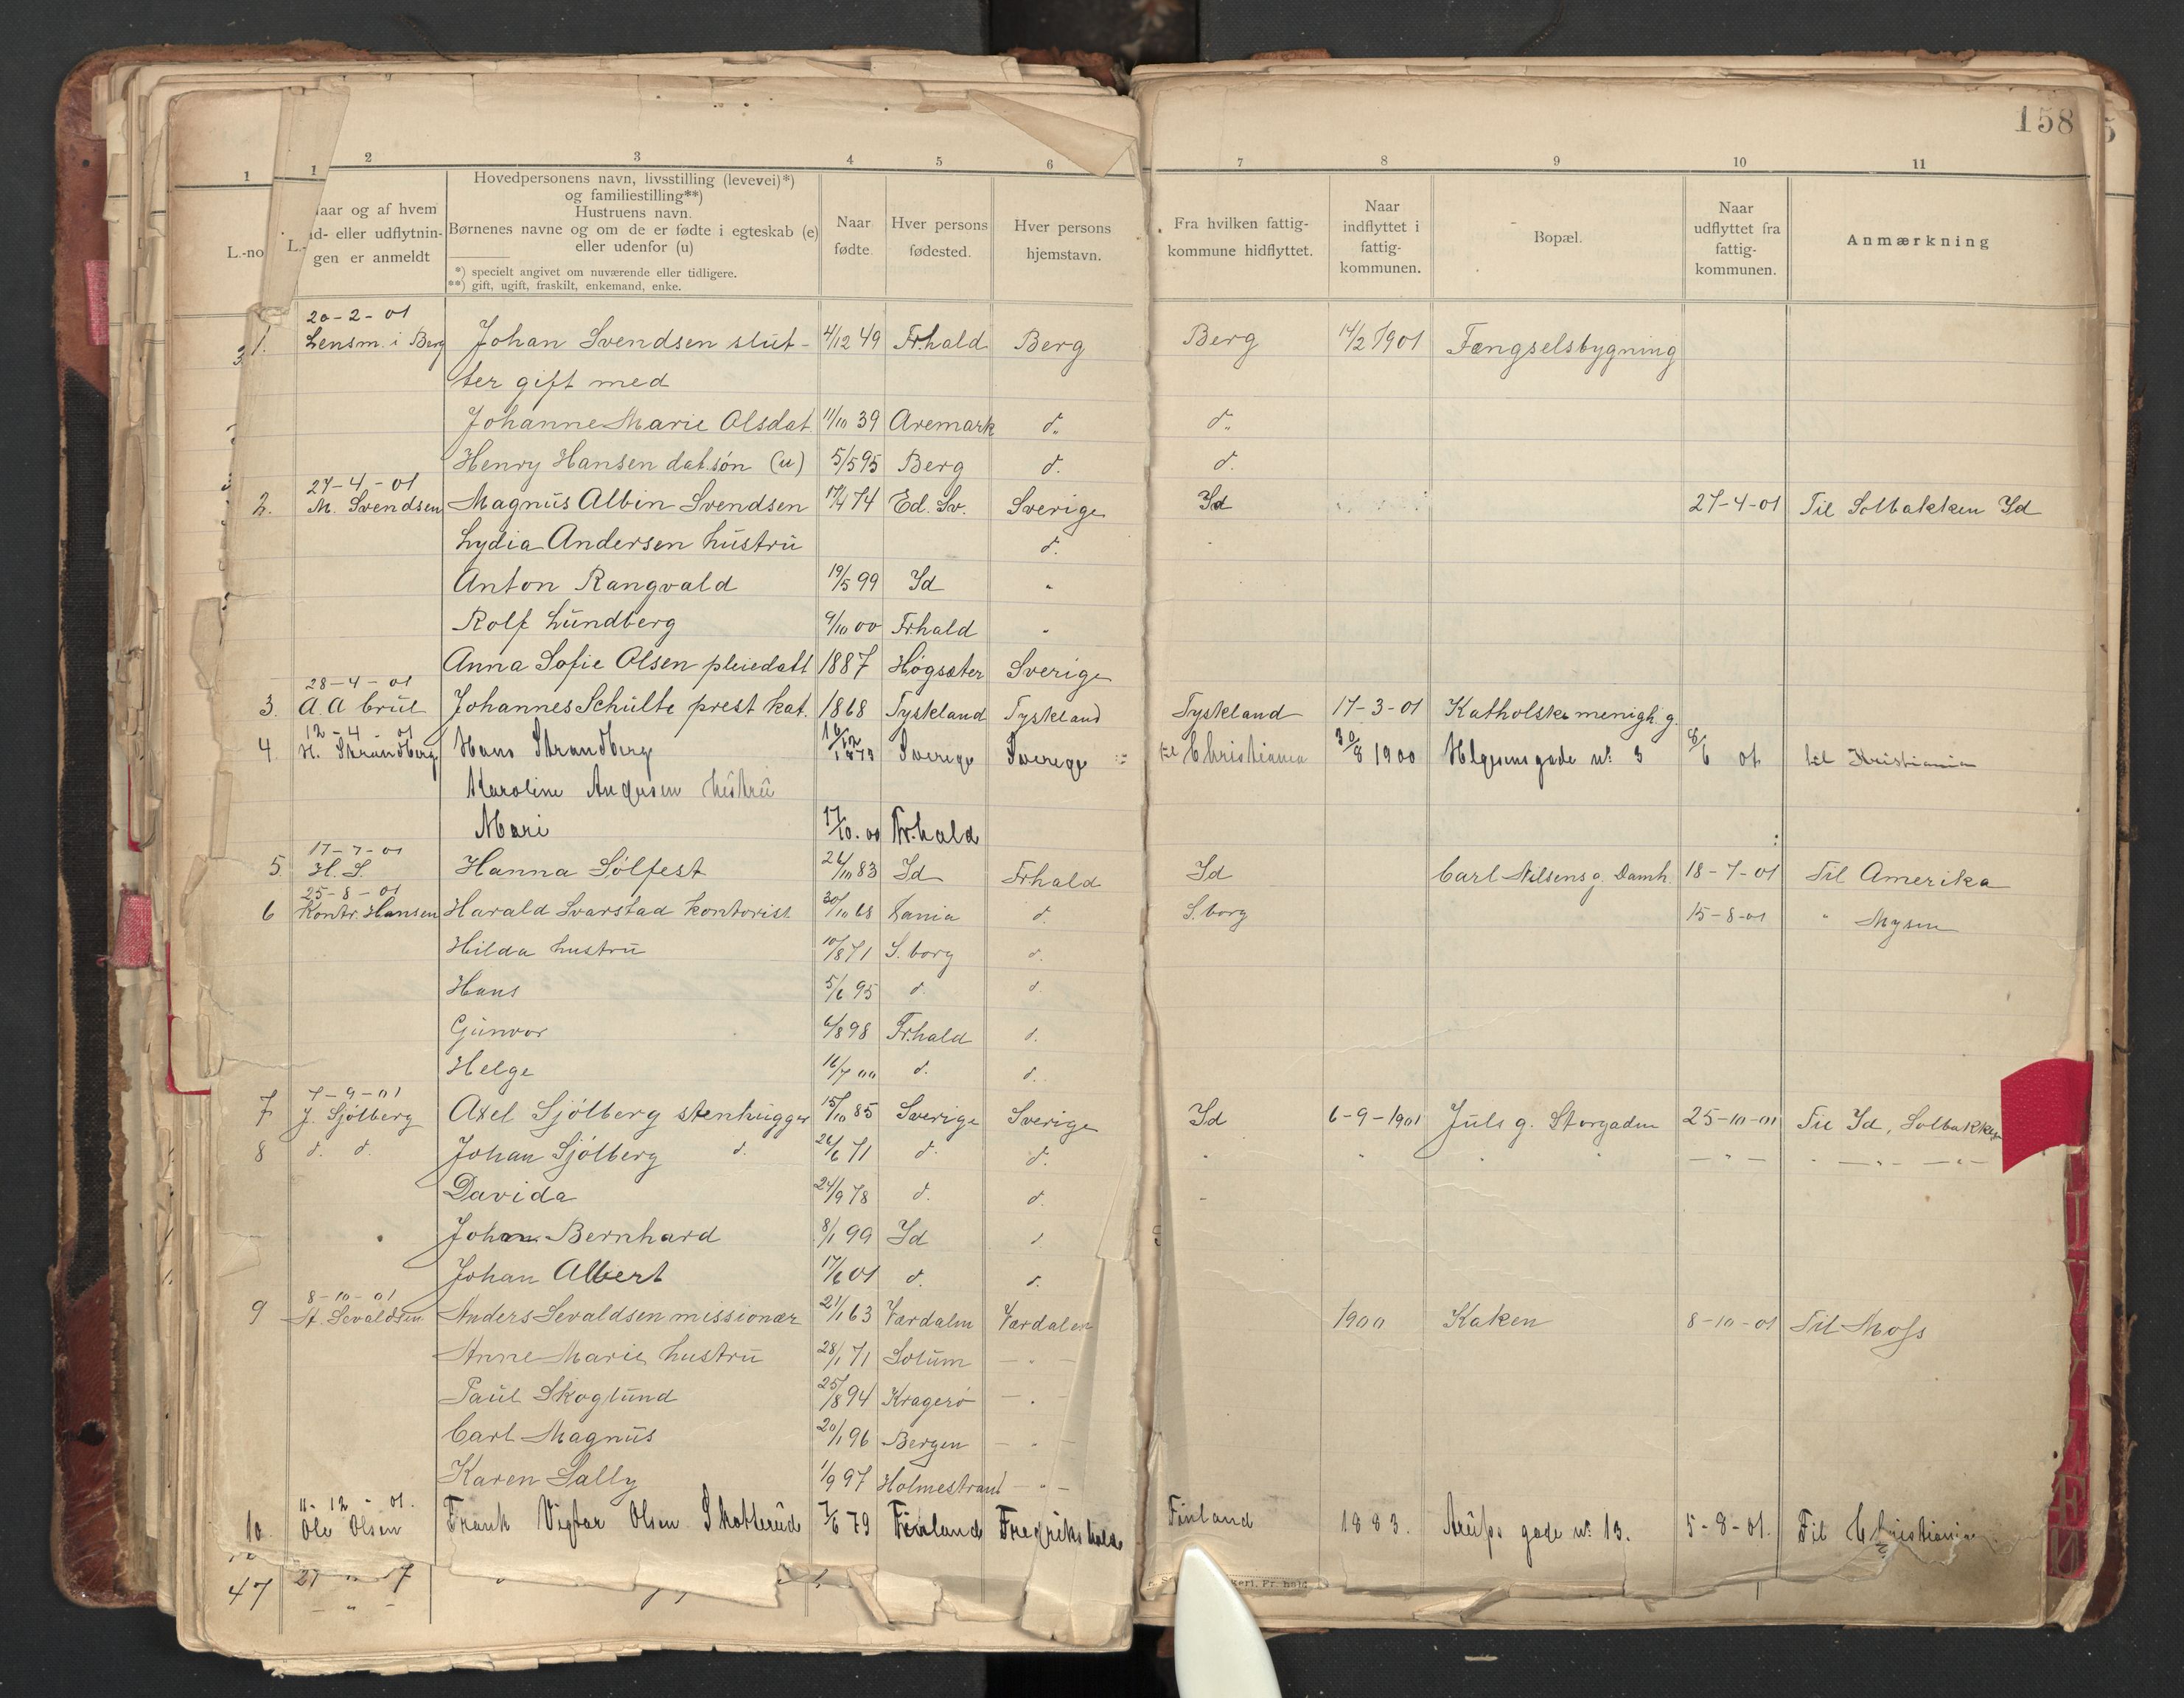 158
1 1 2 3 4 5 6 7 8 9 10 11
L.-no L.- aar og af hvem
nd- eller udflytnin-
gen er anmeldt
Hovedpersonens navn, livsstilling (levevei)*)
og familiestilling**)
Hustruens navn.
Børnenes navne og om de er fødte i egteskab (e)
eller udenfor (u)
*) specielt angivet om nuværende eller tidligere.
**) gift, ugift, fraskilt, enkemand, enke.
Naar
fødte.
Hver persons
fødested.
Hver persons
hjemstavn.
Fra hvilken fattig-
kommune hidflyttet.
Naar
indflyttet i
fattig-
kommunen.
Bopæl.
Naar
udflyttet fra
fattig-
kommunen.
Anmærkning
20-2-01
1. Lensm. i Berg Johan Svendsen slut- 4/12 49 Fr.hald Berg Berg 14/2 1901 Fængselsbygning
ter gift med
Johanne Marie Olsdat 11/10 39 Aremark d.. d..
Henry Hansen dat.søn (u) 5/5 95 Berg d. d.
27-4-01
2. M. Svendsen Magnus Albin Svendsen 17/4 74 Ed. Sv. Sverige Id 27-4-01 Til Solbakken Id
Lydia Andersen hustru d.
Anton Rangvald 19/5 99 Id "
Rolf Lundberg 9/10 00 Fr.hald "
Anna Sofie Olsen pleiedatt 1887 Högsæter Sverige
28-4-01
3. A. A. Crul Johannes Schulte prest kat. 1868 Tyskland Tyskland Tyskland 17-3-01 Katholske menigh. g.
12-4-01
4 H. Strandberg Hans Strandberg Sverige Sverige til Christiania 30/8 1900 gade n: 3 8/6 01 til Kristiania
Karoline hustru
Mari 17/10.00 Fr.hald
17-7-01
5. H. S. Hanna Sølfest 26/10 83 Id Frhald Id Carl Nilsens g. Damh. 18-7-01 Til Amerika
25-8-01
6 Kontr. Hansen Harald Svarstad kontorist 30/10 68 d. S.borg 15-8-01 " Mysen
Hilda hustru 10/8 71 S.borg d.
Hans 5/6 95 d. d.
Gunvor 6/8 98 Fr.hald d.
Helge 16/7 00 d. d.
7-9-01
7 J. Sjølberg Axel Sjølberg stenhugger 15/10 85 Sverige Sverige Id 6-9-1901 Juls g. Storgaden 25-10-01 Til Id, Solbakken
8 d. d. Johan Sjølberg d. 26/6 71 d. d. " " " " - " - " - " - - " -
Davida 24/9 78 d. d. -
Johan Bernhard 8/1 99 Id d.
Johan Albert 17/6 01 d. d.
8-10-01
9 A. Sevaldsen Anders Sevaldsen missionær 21/1 63 Værdalen Værdalen 1900 Kaken 8-10-01 Til Moss
Anne Marie hustru 28/1 71 Solum - " -
Paul Skoglund 25/8 94 Kragerø - "
Carl Magnus 20/1 96 Bergen - " -
Karen Sally 1/9 97 Holmestrand - " -
11-12-01.
10. Ole Olsen Frank Vigtor Olsen Skotterud 7/6 79 Finland Fredrikshald Finland 1883. Arups gade n: 13. 5-8-01. Til Christiania
47 27
- " -